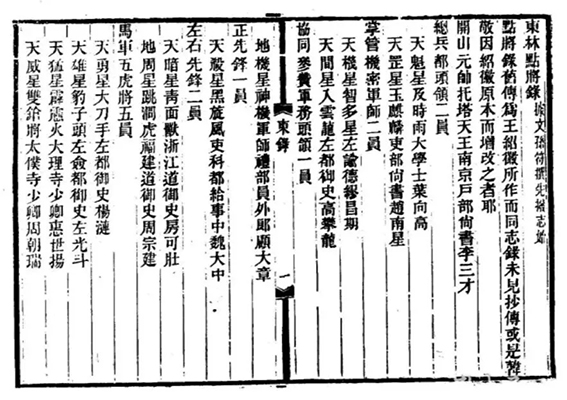 東林點將錄 據文孫符撰先撥志始
點將錄舊傳爲王紹徽所作而同志錄未見抄傳或是韓
敬因紹徽原本而增改之者耶
開山元帥托塔天王南京戸部尙書李三才
總兵都頭領二員
天魁星及時雨大學士葉向高
天罡星玉麒麟吏部尙書趙南星
掌管機密軍師二員
天機星智多星左諭德繆昌期
天間星入雲龍左都御史高攀龍
協同參贊軍務頭領一員
地機星神機軍師禮部員外郎顧大章
正先鋒一員
天殺星黑旋風吏科都給事中魏大中
左右先鋒二員
天暗星靑面獸浙江道御史房可壯
地周星跳澗虎福建道御史周宗建
馬軍五虎將五員
天勇星大刀手左都御史楊漣
天雄星豹子頭左僉都御史左光斗
天猛星霹靂火大理寺少卿惠世揚
天威星雙鎗將太僕寺少卿周朝瑞
東錄
一